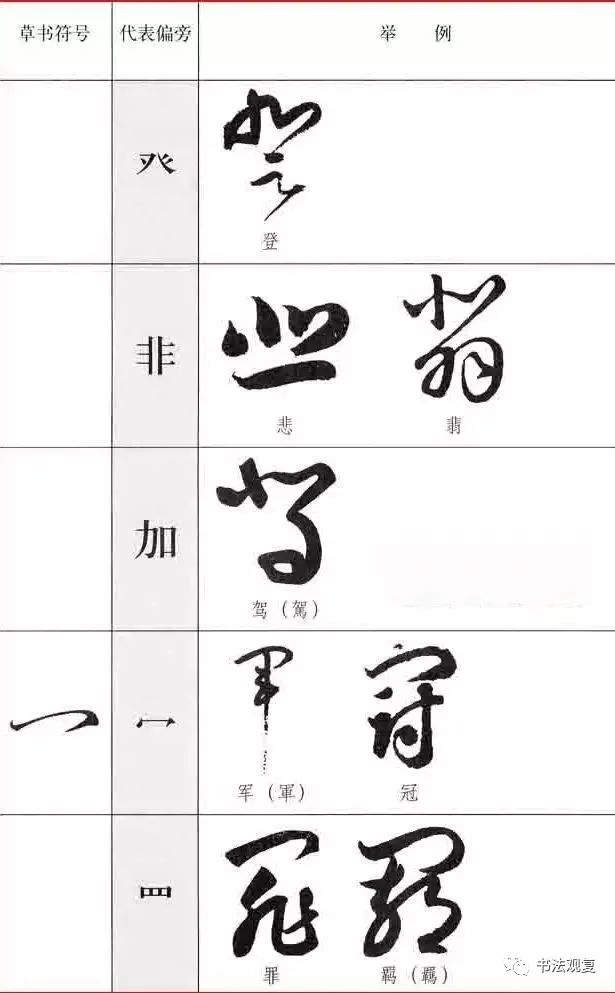 草书符号 代表偏旁 举 例
癶
登
非
悲 翡
加
驾（駕）
冖
军（軍） 冠
罒
罪 羁（羈）
书法观复